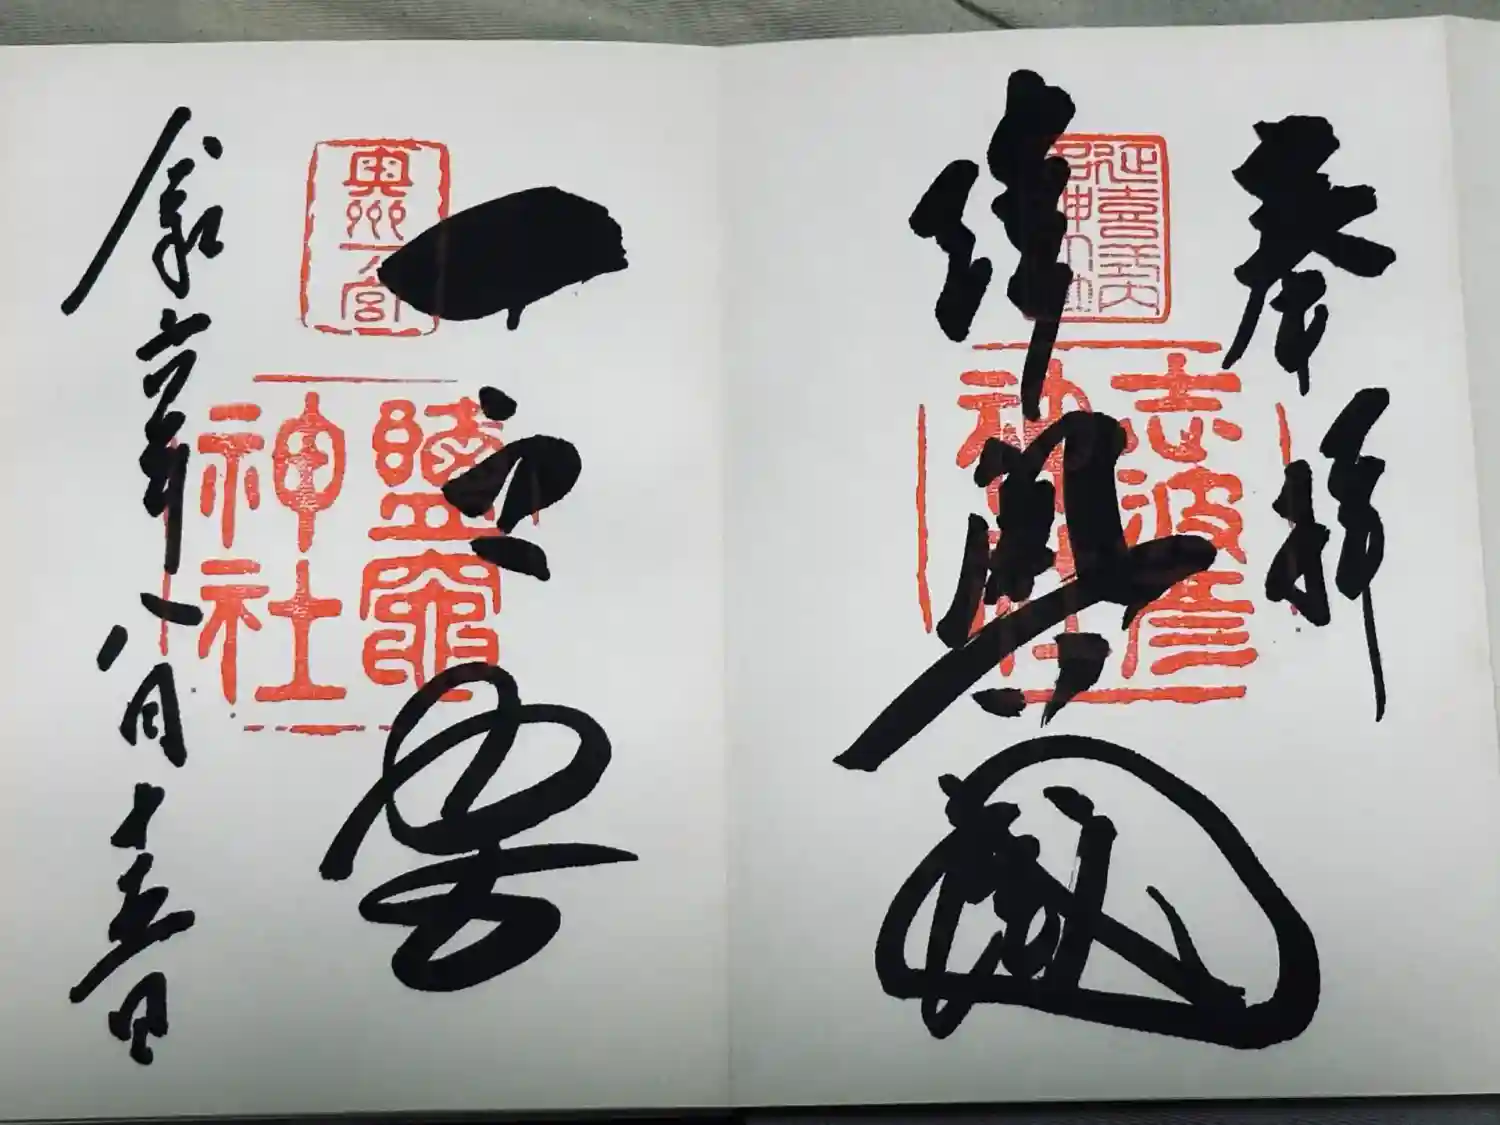 奉拝
延喜式内
名神大社
志波彦
神社
陸奥國
奥州
一宮
鹽竈
神社
一之宮
令和六年八月十五日